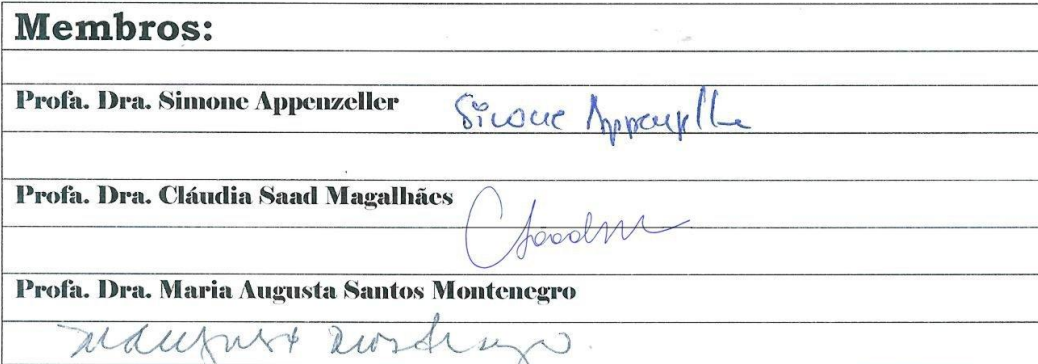 Membros:
Profa. Dra. Simone Appenzeller
Simone Appenzeller
Profa. Dra. Cláudia Saad Magalhães
CSaadm
Profa. Dra. Maria Augusta Santos Montenegro